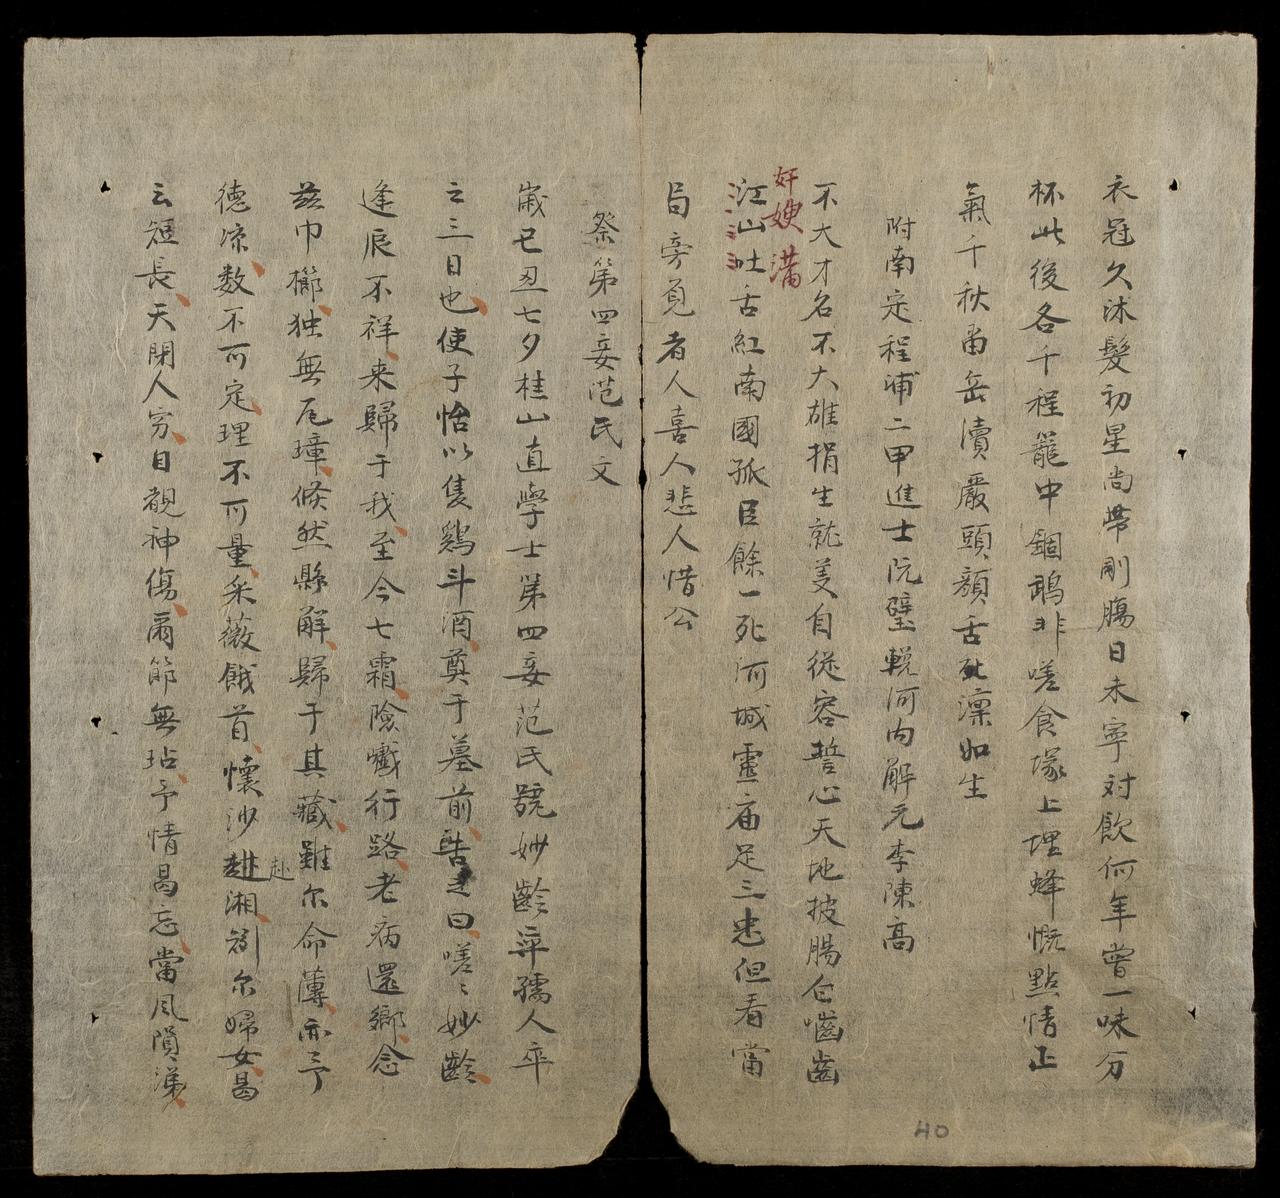 衣冠久沐髮初星尚帶剛腸日未寧対飲何年曾一味分
杯此後各千程籠中錮鵡非嗟食塚上埋蜂慨點情正
氣千秋畱岳瀆嚴頭顏舌死凜如生
附南定程浦二甲進士阮璧輓河内解元李陳高
不大才名不大雄捐生就美自從容誓心天地披腸仝嚙齒
奸嫂满
江山吐舌紅南國孤臣餘一死河城靈庙足三忠但看當
局旁觅者人喜人悲人惜公
祭第四妾范氏文
歲已丑七夕桂山直學士第四妾范氏號妙齡孺人卒
之三日也使子怡以隻鷄斗酒奠于墓前告之曰嗟〻妙齡
逢辰不祥来歸于我至今七霜險巇行路老病還鄉念
茲巾櫛独無瓦璋倏然縣解歸于其藏雖尔命薄亦予
德凉数不可定理不可量采薇餓首懷沙赴湘矧尔婦女曷
赴
云短長天閉人穷目覩神傷爾節無玷予情曷忘當风隕涕
40